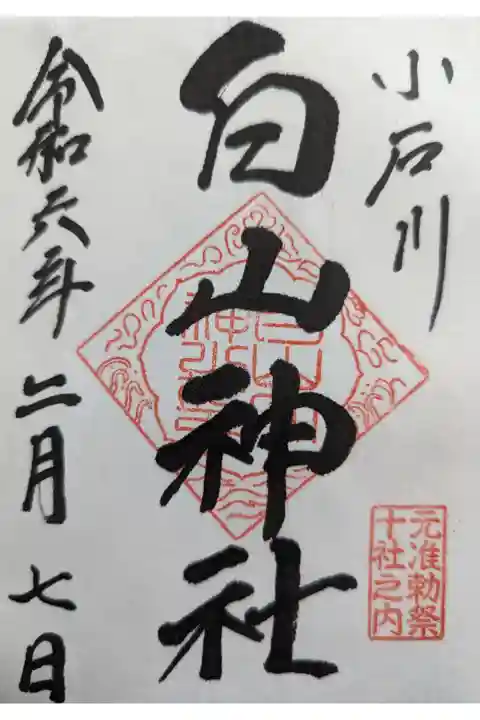 小石川
白山神社
令和六年二月七日
元准勅祭
十社之内